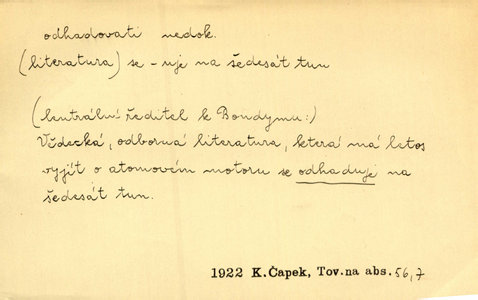 odhadovati nedok.
(literatura) se -uje na šedesát tun
(centrální ředitel k Bondymu:)
Vědecká, odborná literatura, která má letos
vyjít o atomovém motoru se odhaduje na
šedesát tun.
1922 K.Čapek, Tov.na abs. 56,7